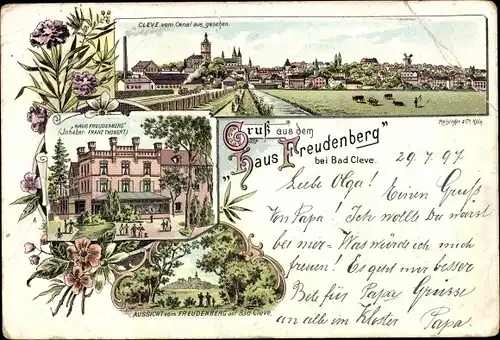 CLEVE vom Canal aus gesehen.
Reisinger & Co. Köln
"HAUS FREUDENBERG"
(Inhaber: FRANZ THONERT.)
Gruß aus dem
"Haus Freudenberg"
bei Bad Cleve.
29. 7. 97
Liebe Olga! Einen Gruß
Von Papa! Ich wollte Du wärst
bei mir - Was würde ich mich
freuen! Es geht mir besser
Bete für Papa Grüsse
an alle im Kloster Papa.
AUSSICHT vom FREUDENBERG auf Bad Cleve.